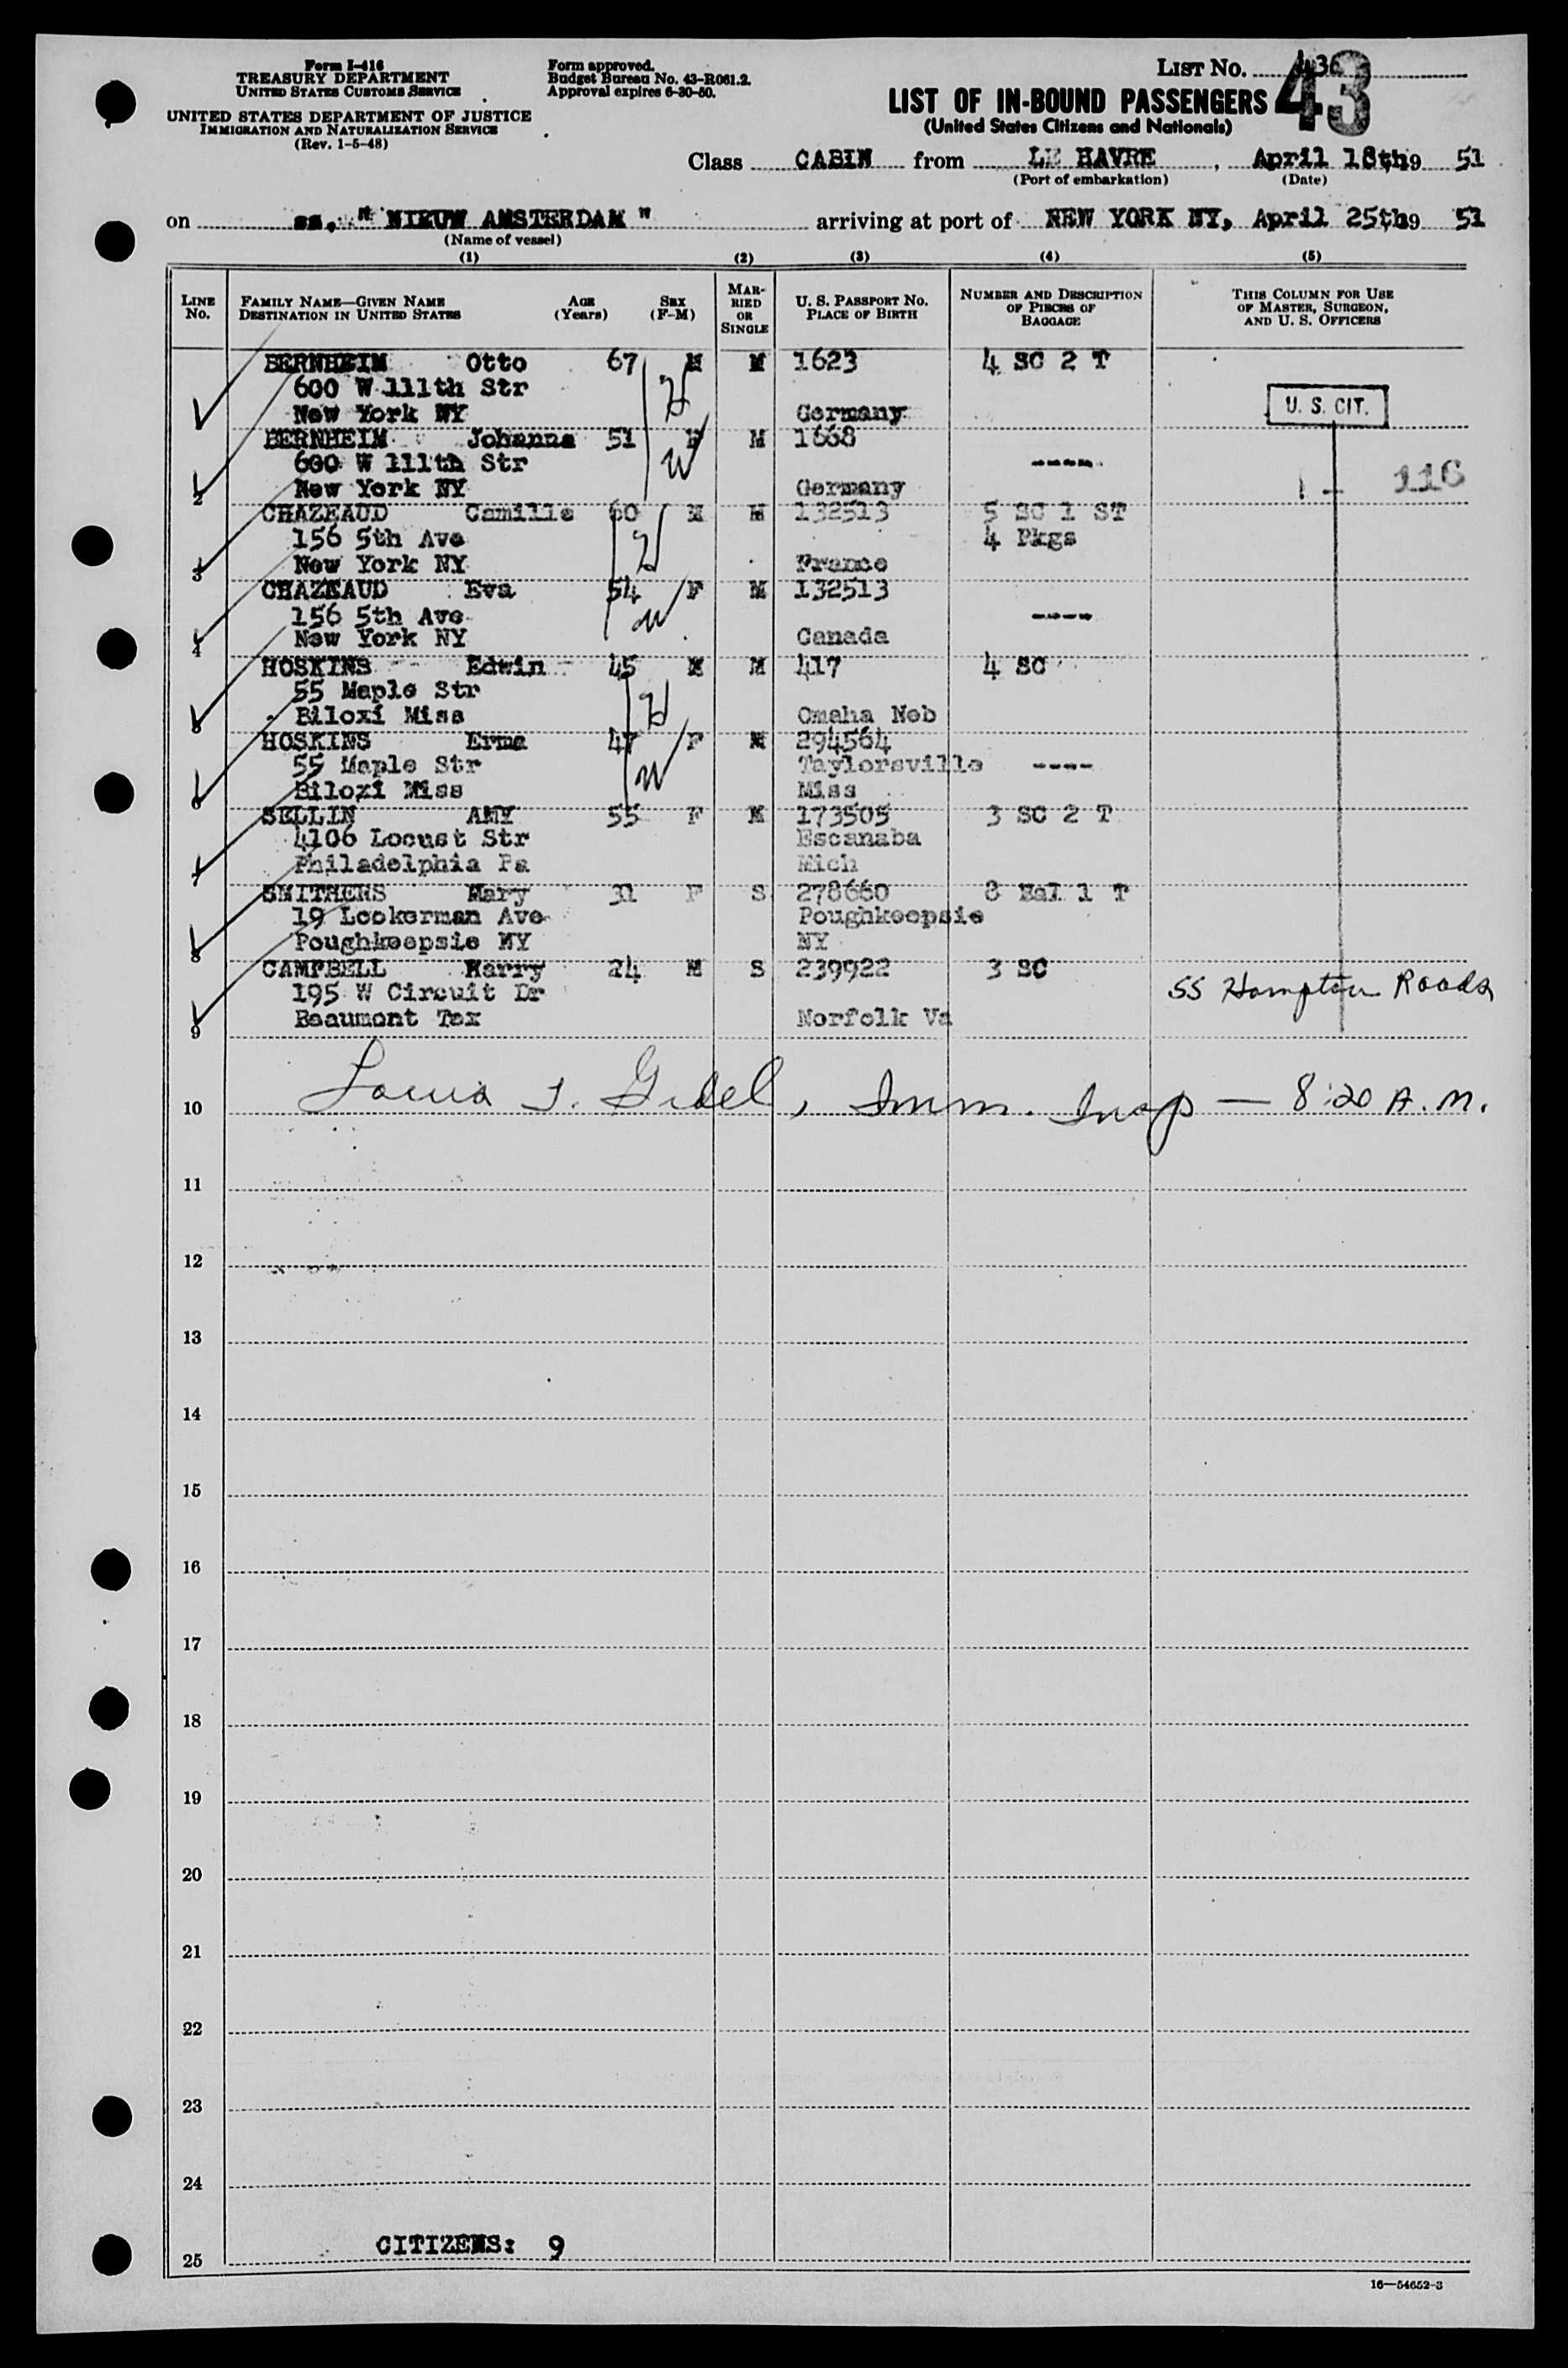 Form I-416
TREASURY DEPARTMENT
UNITED STATES CUSTOMS SERVICE
UNITED STATES DEPARTMENT OF JUSTICE
IMMIGRATION AND NATURALIZATION SERVICE
(Rev. 1-5-48)
Form approved.
Budget Bureau No. 43-R061.2.
Approval expires 6-30-50.
LIST No.
43
LIST OF IN-BOUND PASSENGERS
(United States Citizens and Nationals)
Class CABIN from LE HAVRE, April 18th, 19 51
(Port of embarkation) (Date)
on ss. "NIEUW AMSTERDAM" arriving at port of NEW YORK NY, April 25th, 19 51
(Name of vessel)
(1) (2) (3) (4) (5)
LINE No. FAMILY NAME—GIVEN NAME DESTINATION IN UNITED STATES AGE (Years) SEX (F-M) MARRIED OR SINGLE U. S. PASSPORT No. PLACE OF BIRTH NUMBER AND DESCRIPTION OF PIECES OF BAGGAGE THIS COLUMN FOR USE OF MASTER, SURGEON, AND U. S. OFFICERS
BERNHEIM Otto 67 M M 1623 4 SC 2 T
600 W 111th Str
New York NY Germany
U. S. CIT.
BERNHEIM Johanna 51 F M 1668
600 W 111th Str ----
2 New York NY Germany
116
CHAZEAUD Camille 60 M M 132513 5 SC 1 ST
156 5th Ave 4 Pkgs
3 New York NY France
CHAZEAUD Eva 54 F M 132513
156 5th Ave ----
4 New York NY Canada
HOSKINS Edwin 45 M M 417 4 SC
55 Maple Str
Biloxi Miss Omaha Neb
HOSKINS Erma 47 F M 294564
55 Maple Str Taylorsville ----
6 Biloxi Miss Miss
SELLIN AMY 55 F M 173505 3 SC 2 T
4106 Locust Str Escanaba
7 Philadelphia Pa Mich
SMITHERS Mary 31 F S 278660 8 Bal 1 T
19 Lookerman Ave Poughkeepsie
8 Poughkeepsie NY NY
CAMPBELL Harry 24 M S 239922 3 SC
195 W Circuit Dr
SS Hampton Roads
9 Beaumont Tex Norfolk Va
10 Louis J. Gidel, Imm. Insp — 8:20 A.M.
11
12
13
14
15
16
17
18
19
20
21
22
23
24
CITIZENS: 9
25
16—54652-3